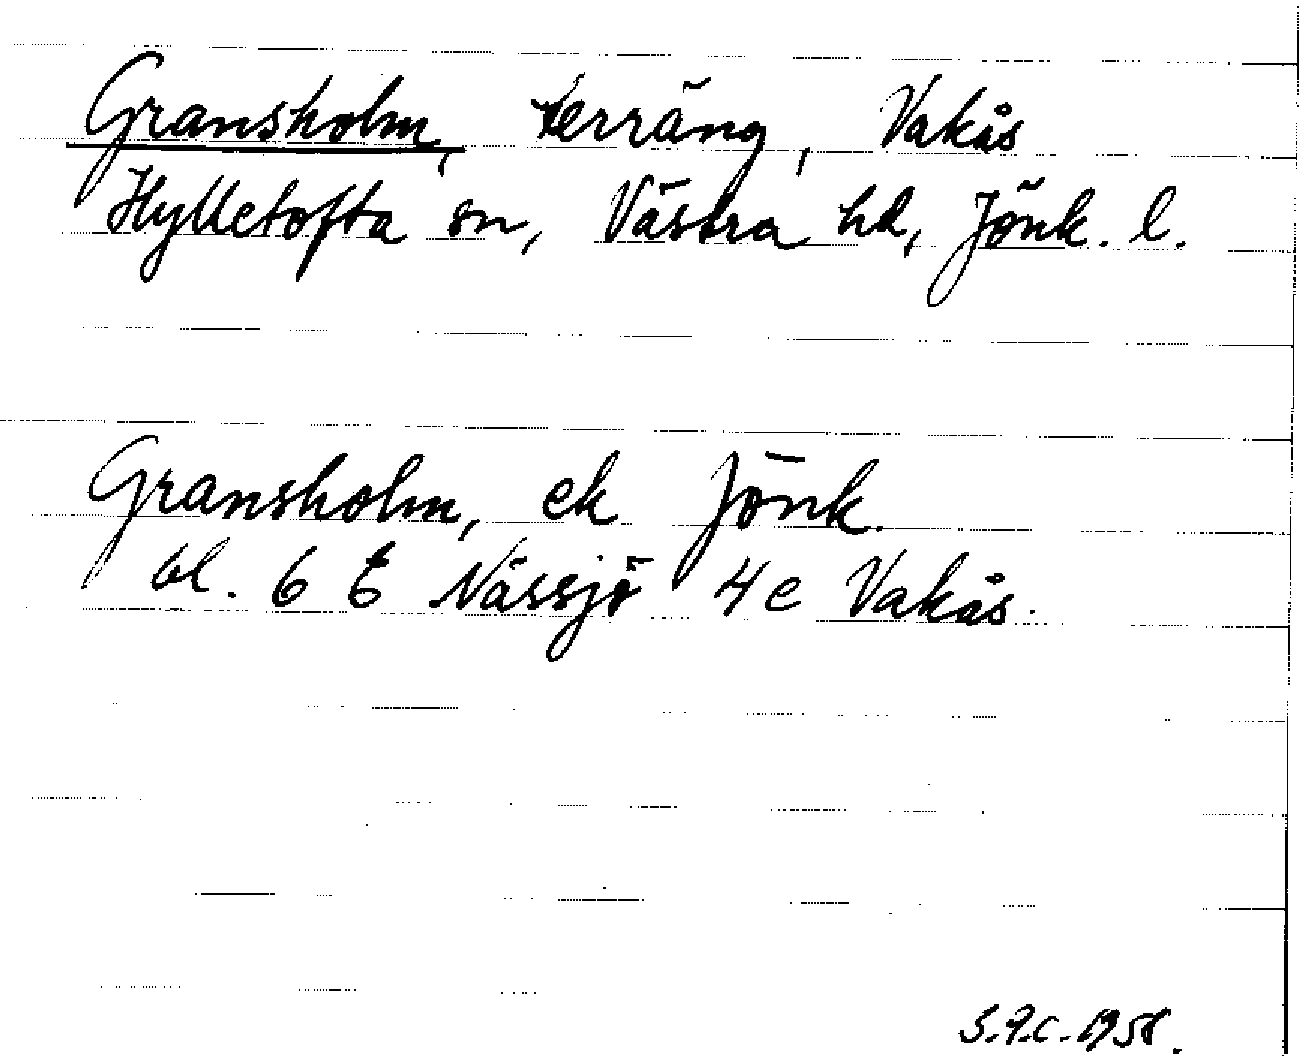 Gransholm, terräng, Vakås
Hylletofta sn, Västra hd, Jönk. l.
Gransholm, ek Jönk.
bl. 6 E Nässjö 4 e Vakås.
1958.